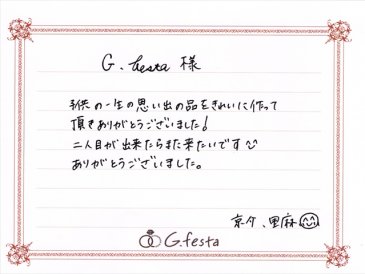 G. festa 様
子供の一生の思い出の品をきれいに作って
頂きありがとうございました!
二人目が出来たらまた来たいです
ありがとうございました。
京介、里麻
G.festa